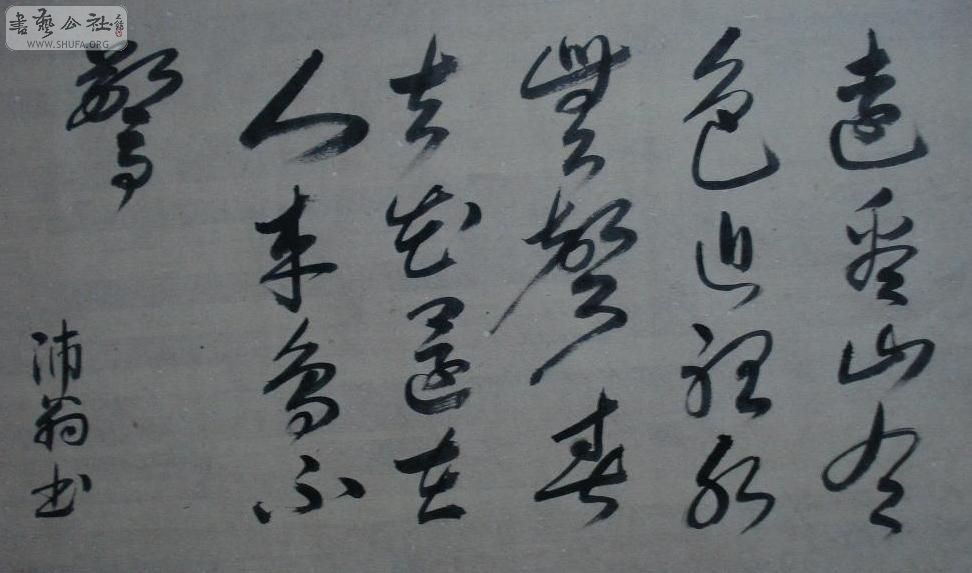 書藝公社
WWW.SHUFA.ORG
遠看山有
色近聽水
無聲春
去花還在
人来鳥不
驚
沛翁书